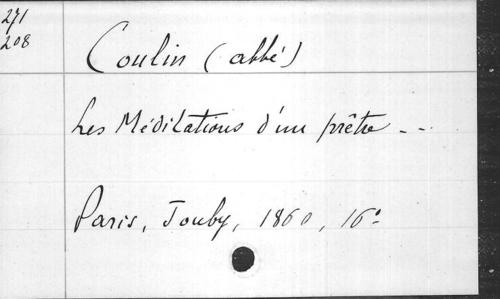 271
208
Coulin (abbé)
Les Méditations d'un prêtre - -
Paris, Jouby, 1860, 16°